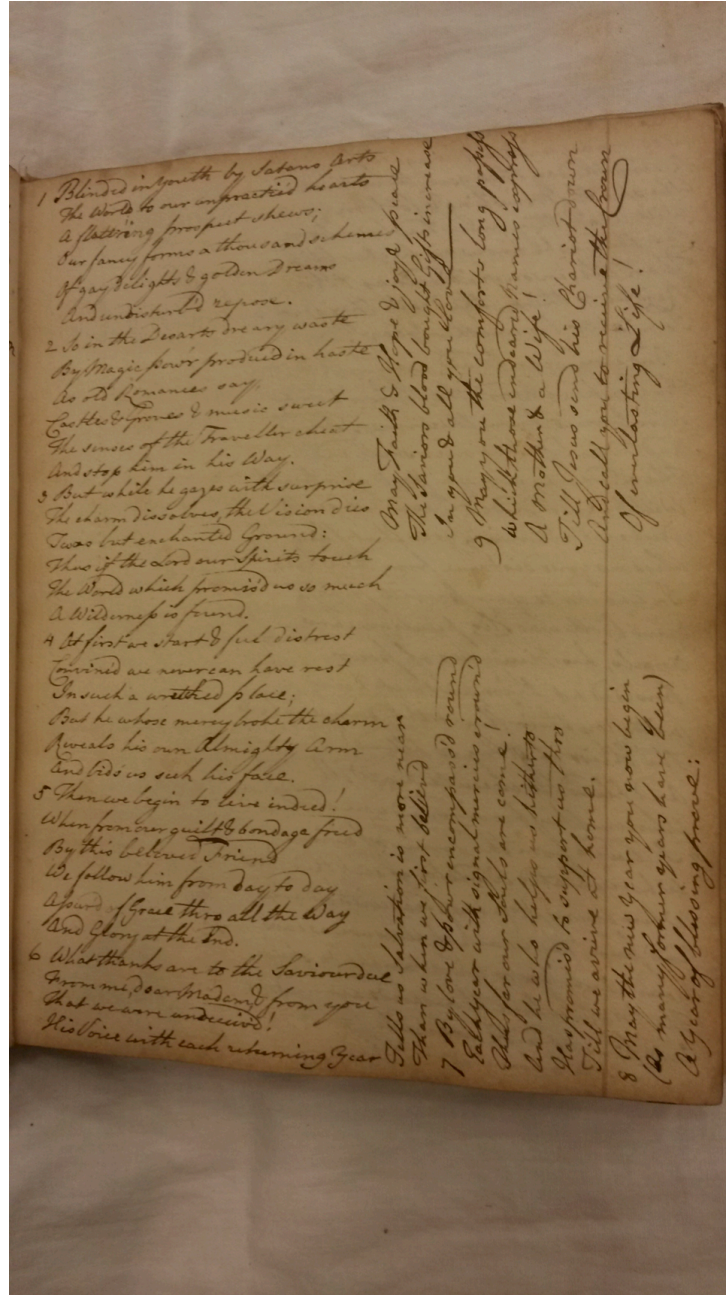 1 Blinded in youth by Satans Arts
The World to our unpractied hearts
A flattering prospect shews;
Our fancy forms a thousand schemes
Of gay delights & golden Dreams
And undisturb'd repose.
2 So in the Desarts dreary waste
By Magic pow'r produced in haste
As old Romances say,
Castles & Groves & music sweet
The senses of the Traveller cheat
And stop him in his Way.
3 But while he gazes with surprise
The charm dissolves, the Vision dies
Twas but enchanted Ground:
Thus if the Lord our Spirits touch
The World which promis'd us so much
A Wilderness is found.
4 At first we start & feel distrest
Convinced we never can have rest
In such a wretched place;
But he whose mercy broke the charm
Reveals his own Almighty Arm
And bids us seek his face.
5 Then we begin to live indeed!
When from our guilt & bondage freed
By this beloved Friend
We follow him from day to day
Assur'd of Grace thro all the Way
And Glory at the End.
6 What thanks are to the Saviour due
From me, dear Madam, & from you
That we were undeceived!
His Voice with each returning Year
Tells us Salvation is more near
Than when we first believd
7 By love & pow'r encompass'd round
Each year with signal mercies crown'd
Thus far our Souls are come!
And he who helps us hitherto
Has promis'd to support us thro
Till we arive at home.
8 May the new year you now begin
(As many former years have been)
A Year of blessing prove:
May Faith & Hope & joy & peace
The Saviors blood bought Gifts increase
In you & all you love
9 May you the comforts long possess
Which those endeared names express
A Mother & a Wife!
Till Jesus send his Chariot down
And call you to receive the Crown
Of everlasting Life!